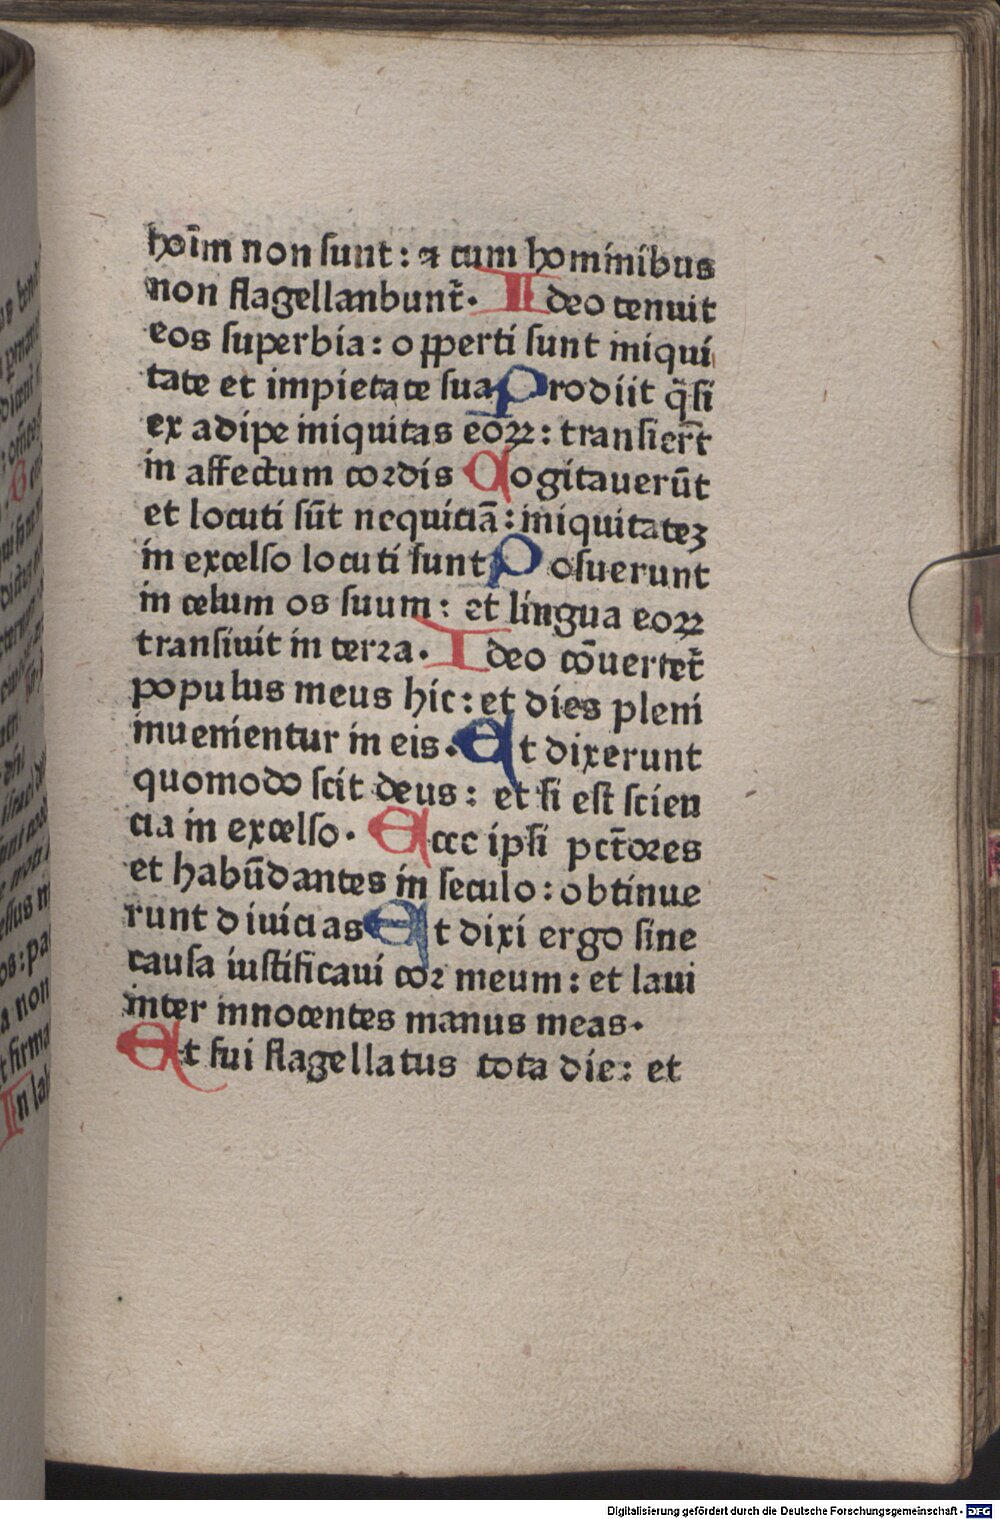 hoīm non sunt: ⁊ cum hominibus
non flagellanbunt̄. Ideo tenuit
eos superbia: opꝑerti sunt iniqui
tate et impietate sua Prodiit q̄si
ex adipe iniquitas eoꝝ: transier̄t
in affectum cordis Cogitauerūt
et locuti sūt nequiciā: iniquitatēꝫ
in excelso locuti sunt Posuerunt
in celum os suum: et lingua eoꝝ
transiuit in terra. Ideo cōuertet̄
populus meus hic: et dies pleni
inuenientur in eis. Et dixerunt
quomodo scit deus: et si est scien
cia in excelso. Ecce ipsi pct̄ores
et habūdantes in seculo: obtinue
runt diuicias Et dixi ergo sine
causa iustificaui cor meum: et laui
inter innocentes manus meas.
Et fui flagellatus tota die: et
Digitalisierung gefördert durch die Deutsche Forschungsgemeinschaft - DFG